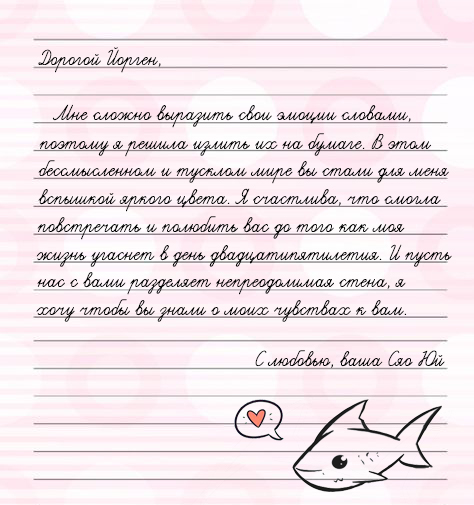 Дорогой Йорген,
Мне сложно выразить свои эмоции словами,
поэтому я решила излить их на бумаге. В этом
бессмысленном и тусклом мире вы стали для меня
вспышкой яркого цвета. Я счастлива, что смогла
повстречать и полюбить вас до того как моя
жизнь угаснет в день двадцатипятилетия. И пусть
нас с вами разделяет непреодолимая стена, я
хочу чтобы вы знали о моих чувствах к вам.
С любовью, ваша Сяо Юй